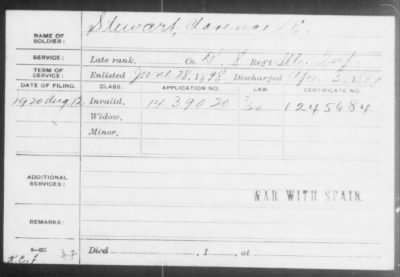 NAME OF SOLDIER: Stewart, E.
SERVICE: Late rank, Co. 8 Reg't Ill. Inf.
TERM OF SERVICE: Enlisted June 28, 1898 Discharged Apr. 3, 1899
DATE OF FILING. CLASS. APPLICATION NO. LAW. CERTIFICATE NO.
1920 Aug 12 Invalid, 1439020 1245684
Widow,
Minor,
ADDITIONAL SERVICES:
WAR WITH SPAIN.
REMARKS:
Died , 1 , at